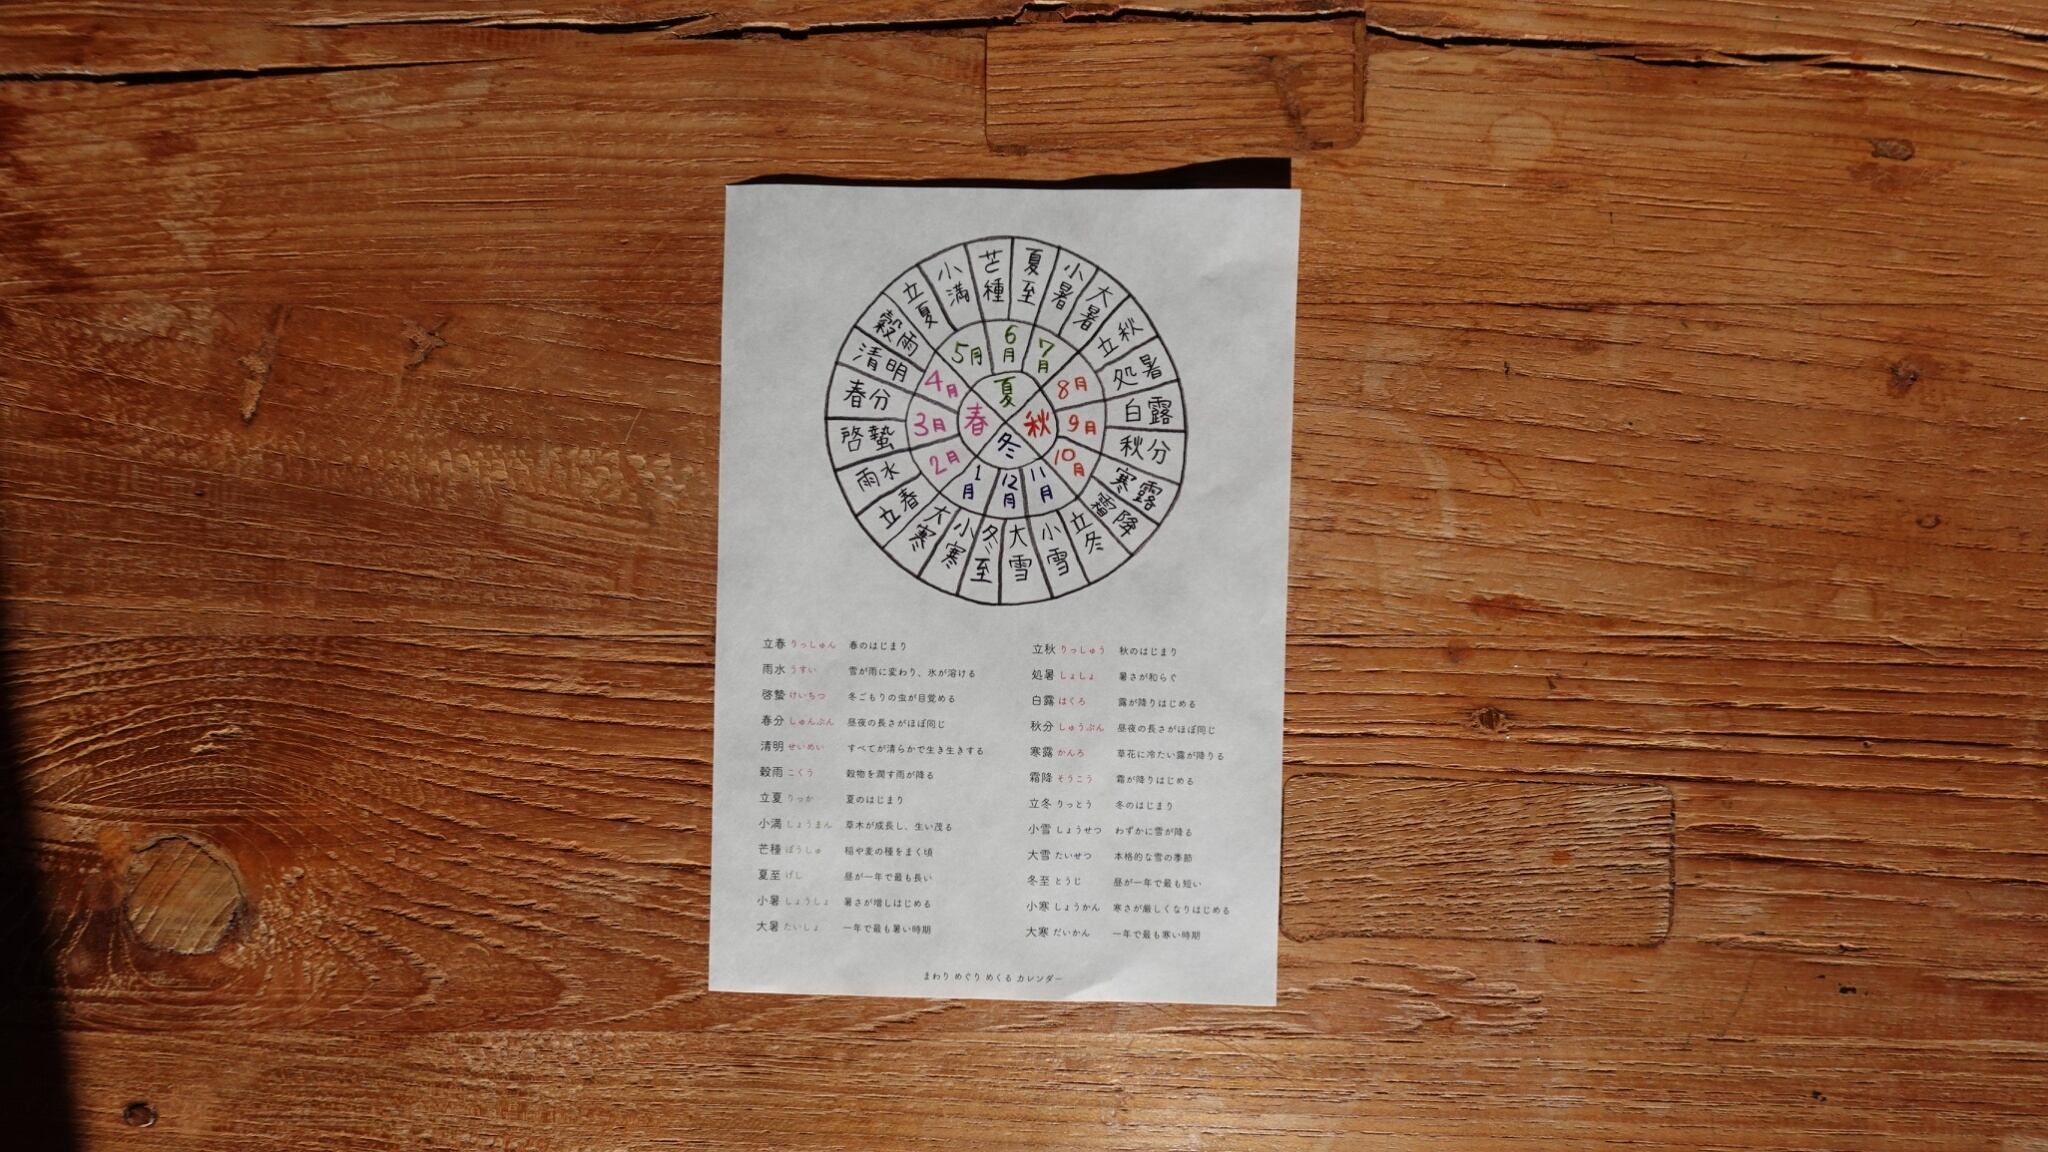 夏
秋
冬
春
6月
7月
8月
9月
10月
11月
12月
1月
2月
3月
4月
5月
夏至
小暑
大暑
立秋
処暑
白露
秋分
寒露
霜降
立冬
小雪
大雪
冬至
小寒
大寒
立春
雨水
啓蟄
春分
清明
穀雨
立夏
小満
芒種
立春 りっしゅん 春のはじまり
雨水 うすい 雪が雨に変わり、氷が溶ける
啓蟄 けいちつ 冬ごもりの虫が目覚める
春分 しゅんぶん 昼夜の長さがほぼ同じ
清明 せいめい すべてが清らかで生き生きする
穀雨 こくう 穀物を潤す雨が降る
立夏 りっか 夏のはじまり
小満 しょうまん 草木が成長し、生い茂る
芒種 ぼうしゅ 稲や麦の種をまく頃
夏至 げし 昼が一年で最も長い
小暑 しょうしょ 暑さが増しはじめる
大暑 たいしょ 一年で最も暑い時期
立秋 りっしゅう 秋のはじまり
処暑 しょしょ 暑さが和らぐ
白露 はくろ 露が降りはじめる
秋分 しゅうぶん 昼夜の長さがほぼ同じ
寒露 かんろ 草花に冷たい露が降りる
霜降 そうこう 霜が降りはじめる
立冬 りっとう 冬のはじまり
小雪 しょうせつ わずかに雪が降る
大雪 たいせつ 本格的な雪の季節
冬至 とうじ 昼が一年で最も短い
小寒 しょうかん 寒さが厳しくなりはじめる
大寒 だいかん 一年で最も寒い時期
まわり めぐり めくる カレンダー